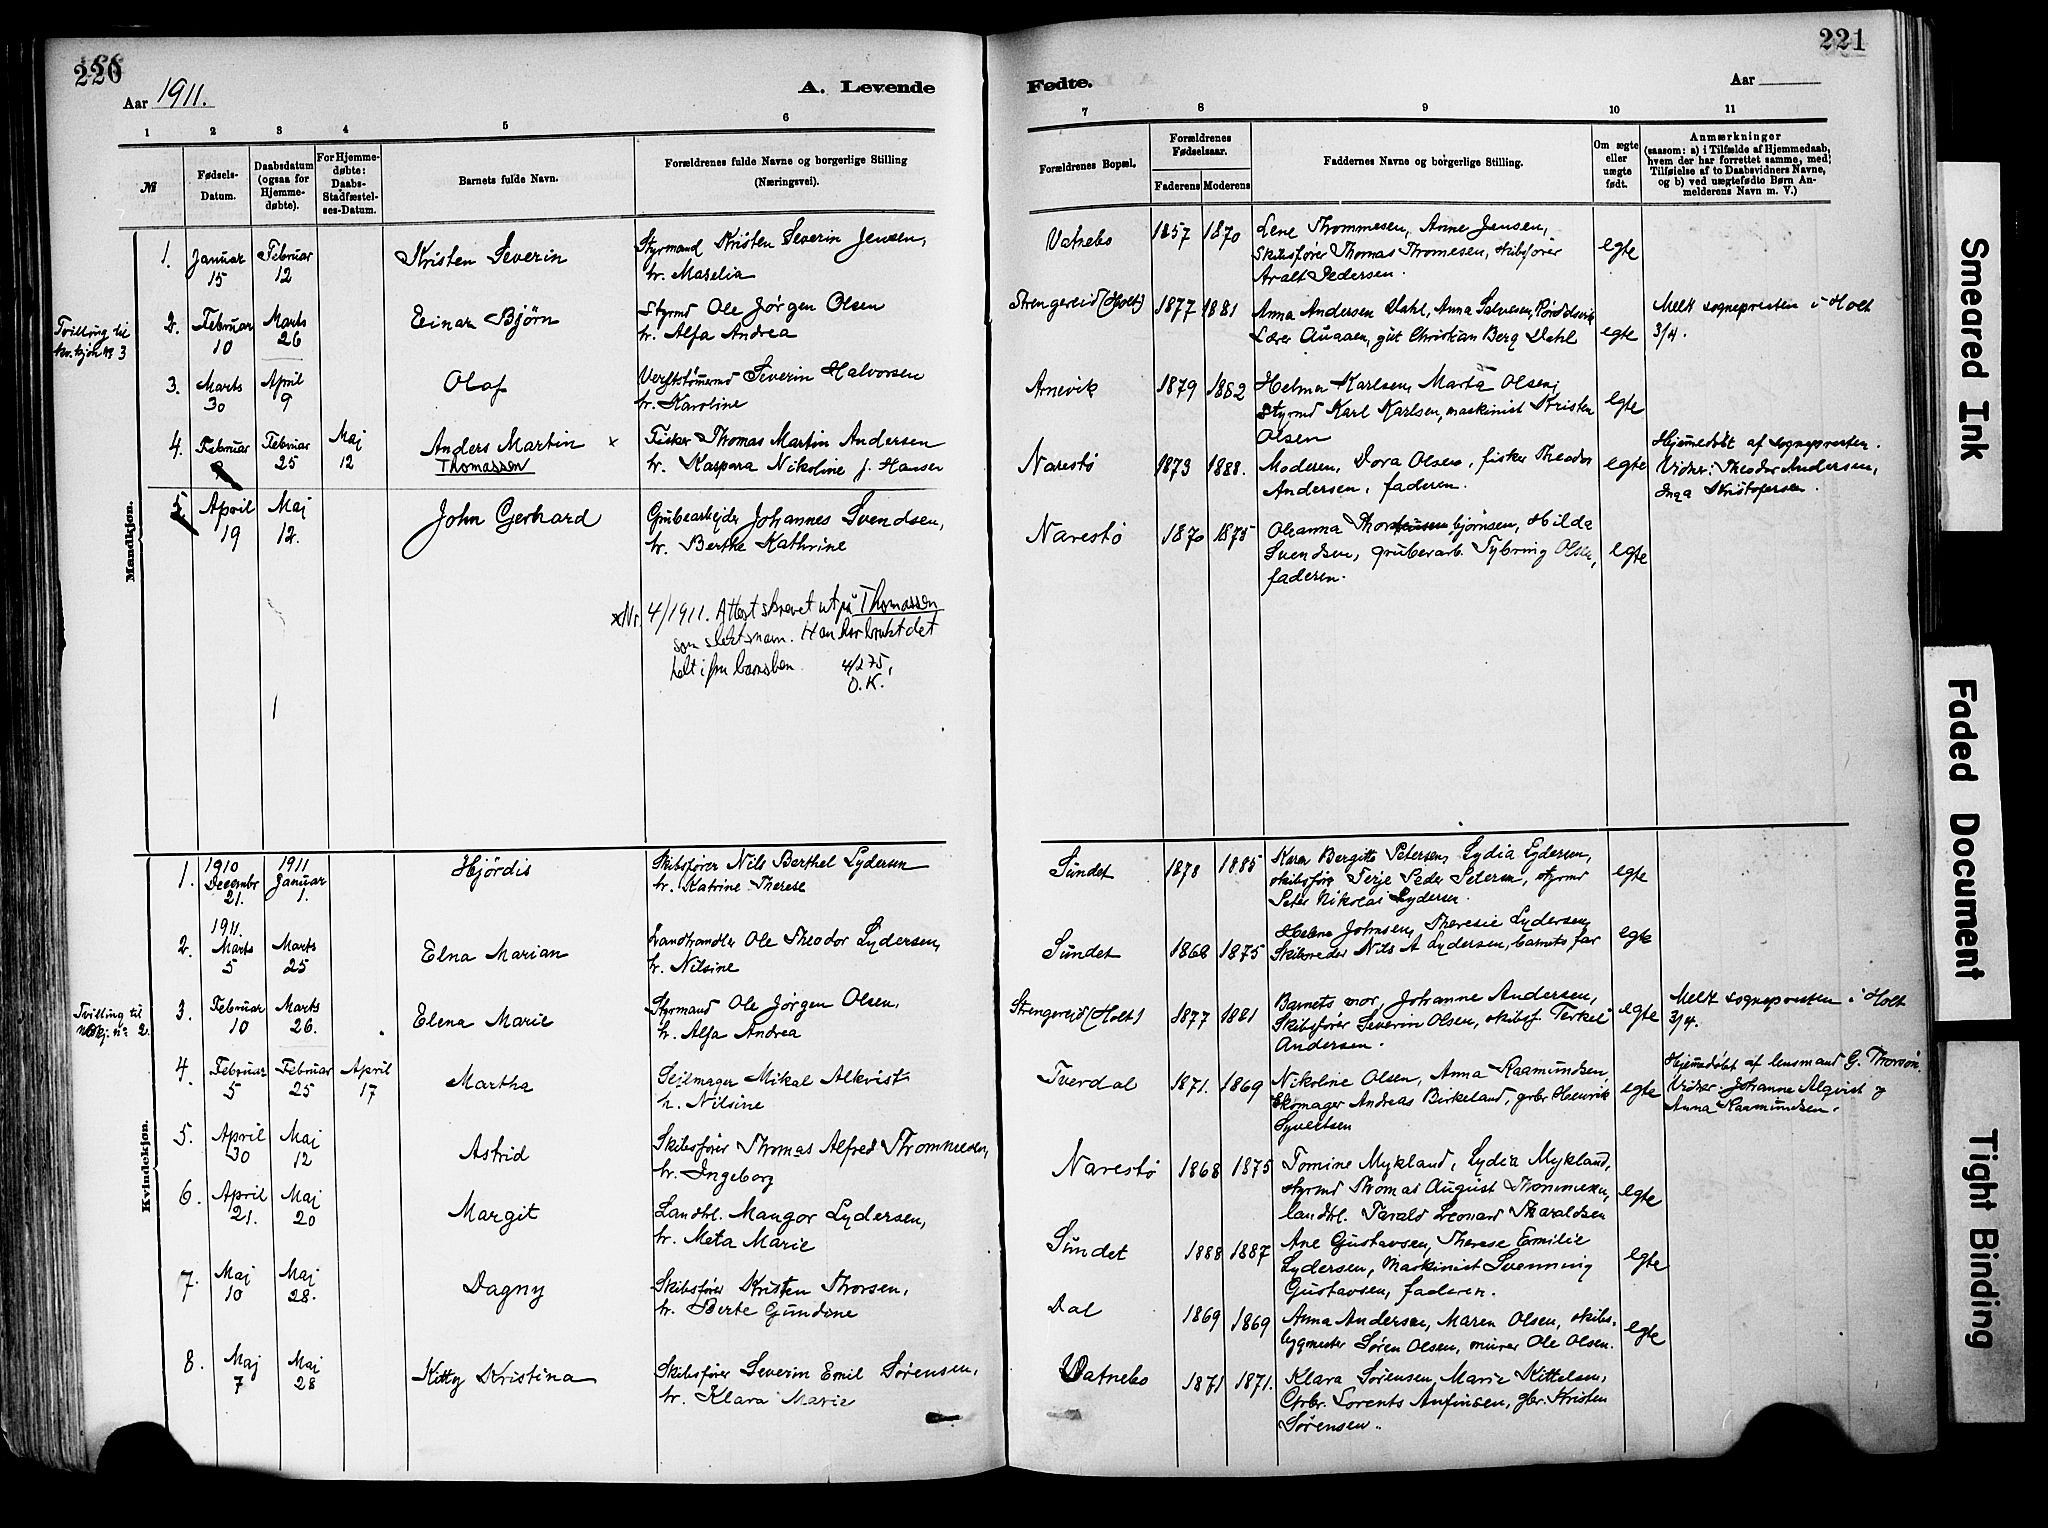 220
Aar 1911.
A. Levende
1 2 3 4 5 6
№
Fødsels-
Datum.
Daabsdatum
(ogsaa for
Hjemme-
døbte).
For Hjemme-
døbte:
Daabs-
Stadfæstel-
ses-Datum.
Barnets fulde Navn.
Forældrenes fulde Navne og borgerlige Stilling
(Næringsvei).
Mandkjøn.
1. Januar 15 Februar 12 Kristen Severin
Styrmand Kristen Severin Jensen,
h. Marelia
Tvilling til
kv. kjøn № 3
2. Februar 10 Marts 26 Einar Bjørn
Styrmd Ole Jørgen Olsen
h. Alfa Andrea
3. Marts 30 April 9 Olaf
Verftstømmermd Severin Halvorsen
h. Karoline
4. Februar Februar 25 Maj 12 Anders Martin ×
Thomassen
Fisker Thomas Martin Andersen
h. Kaspara Nikoline f. Hansen
5. April 19 Maj 12. John Gerhard
Grubearbejder Johannes Svendsen,
h. Berthe Kathrine
×Nr. 4/1911. Attest skrevet ut på Thomassen
som slektsnavn. Han har brukt det
helt i fra barnsben 4/2 75,
O.K.
Kvindekjøn.
1. 1910 Decembr 21. 1911 Januar 1. Hjördis
Skibsfører Nils Berthel Lydersen
h. Katrine Therese
2. 1911. Marts 5 Marts 25 Elna Marian
Landhandler Ole Theodor Lydersen,
h. Nilsine
Tvilling til
nº 2
3. Februar 10 Marts 26. Elena Marie
Styrmand Ole Jørgen Olsen,
h. Alfa Andrea
4. Februar 5 Februar 25 April 17 Martha
Seilmager Mikal Alkvist
h. Nilsine
5. April 30 Maj 12 Astrid
Skibsfører Thomas Alfred Thommesen,
h. Ingeborg
6. April 21. Maj 20 Margit
Landbr. Mangor Lydersen,
h. Meta Marie
7. Maj 10 Maj 28. Dagny
Skibsfører Kristen Thorsen,
h. Berte Gundine
8. Maj 7 Maj 28 Kitty Kristina
Skibsfører Severin Emil Sørensen,
h. Klara Marie
221
Fødte.
Aar
7 8 9 10 11
Forældrenes Bopæl.
Forældrenes
Fødselsaar.
Faderens Moderens
Faddernes Navne og borgerlige Stilling.
Om ægte
eller
uægte
født.
Anmærkninger
(saasom: a) i Tilfælde af Hjemmedaab,
hvem der har forrettet samme, med
Tilføielse af to Daabsvidners Navne,
og b) ved uægtefødte Børn An-
melderens Navn m. V.)
Vatnebo 1857 1870 Lene Thommesen, Anne Jensen,
Skibsfører Thomas Thomesen, skibsfører
Aralt Pedersen.
egte
Strengereid (Holt) 1877 1881 Anna Andersen Dahl, Anna Salvesen,
Lærer Augaen, gut Christian Berg Dahl
egte
Meldt sognepresten i Holt
3/4.
Arnevik 1879 1882 Helma Karlsen, Marta Olsen,
Styrmd Karl Karlsen, maskinist Kristen
Olsen
egte
Narestö 1873 1888. Moderen, Dora Olsen, fisker Theodor
Andersen, faderen.
egte
Hjemmedøbt af sognepresten.
Vidner: Theodor Andersen,
Inga Kristofersen.
Narestö 1870 1875 Oleanna Thorbjørnsen, Hilda
Svendsen, grubearb. Tybring Olsen,
faderen.
egte
Sündet 1878 1885 Karen Bergitte Petersen, Lydia Lydersen,
skibsfører Terje Peder Petersen, styrmd
Peter Nikolai Lydersen.
egte
Sündet 1868 1875 Helene Johnsen, Theresie Lydersen,
Skibsreder Nils A Lydersen, barnets far
egte
Strengereid (Holt) 1877 1881 Barnets mor, Johanne Andersen,
Skibsfører Severin Olsen, skibsf. Terkel
Andersen.
egte
Meldt sognepresten i Holt
3/4.
Tverdal 1871. 1869 Nikoline Olsen, Anna Raamundsen
Skomager Andreas Birkeland, gbr Henrik
Syvertsen
egte
Hjemmedøbt af lensmand G. Thorsøn.
Vidner: Johanne Alqvist og
Anna Raamundsen.
Narestö 1868 1875 Tomine Mykland, Lydia Mykland,
styrmd Thomas August Thommesen,
landbr. Tarald Leonard Tharaldsen
egte
Sündet 1888 1887 Ane Gustavsen, Therese Emilie
Lydersen, Maskinist Svenning
Gustavsen, faderen.
egte
Dal 1869 1869 Anna Andersen, Maren Olsen, skibs-
bygmester Søren Olsen, murer Ole Olsen.
egte
Vatnebo 1871 1871. Klara Sørensen, Marie Kittelsen,
Gbr. Lorents Anfinsen, gbr. Kristen
Sørensen.
Smeared Ink
Faded Document
Tight Binding